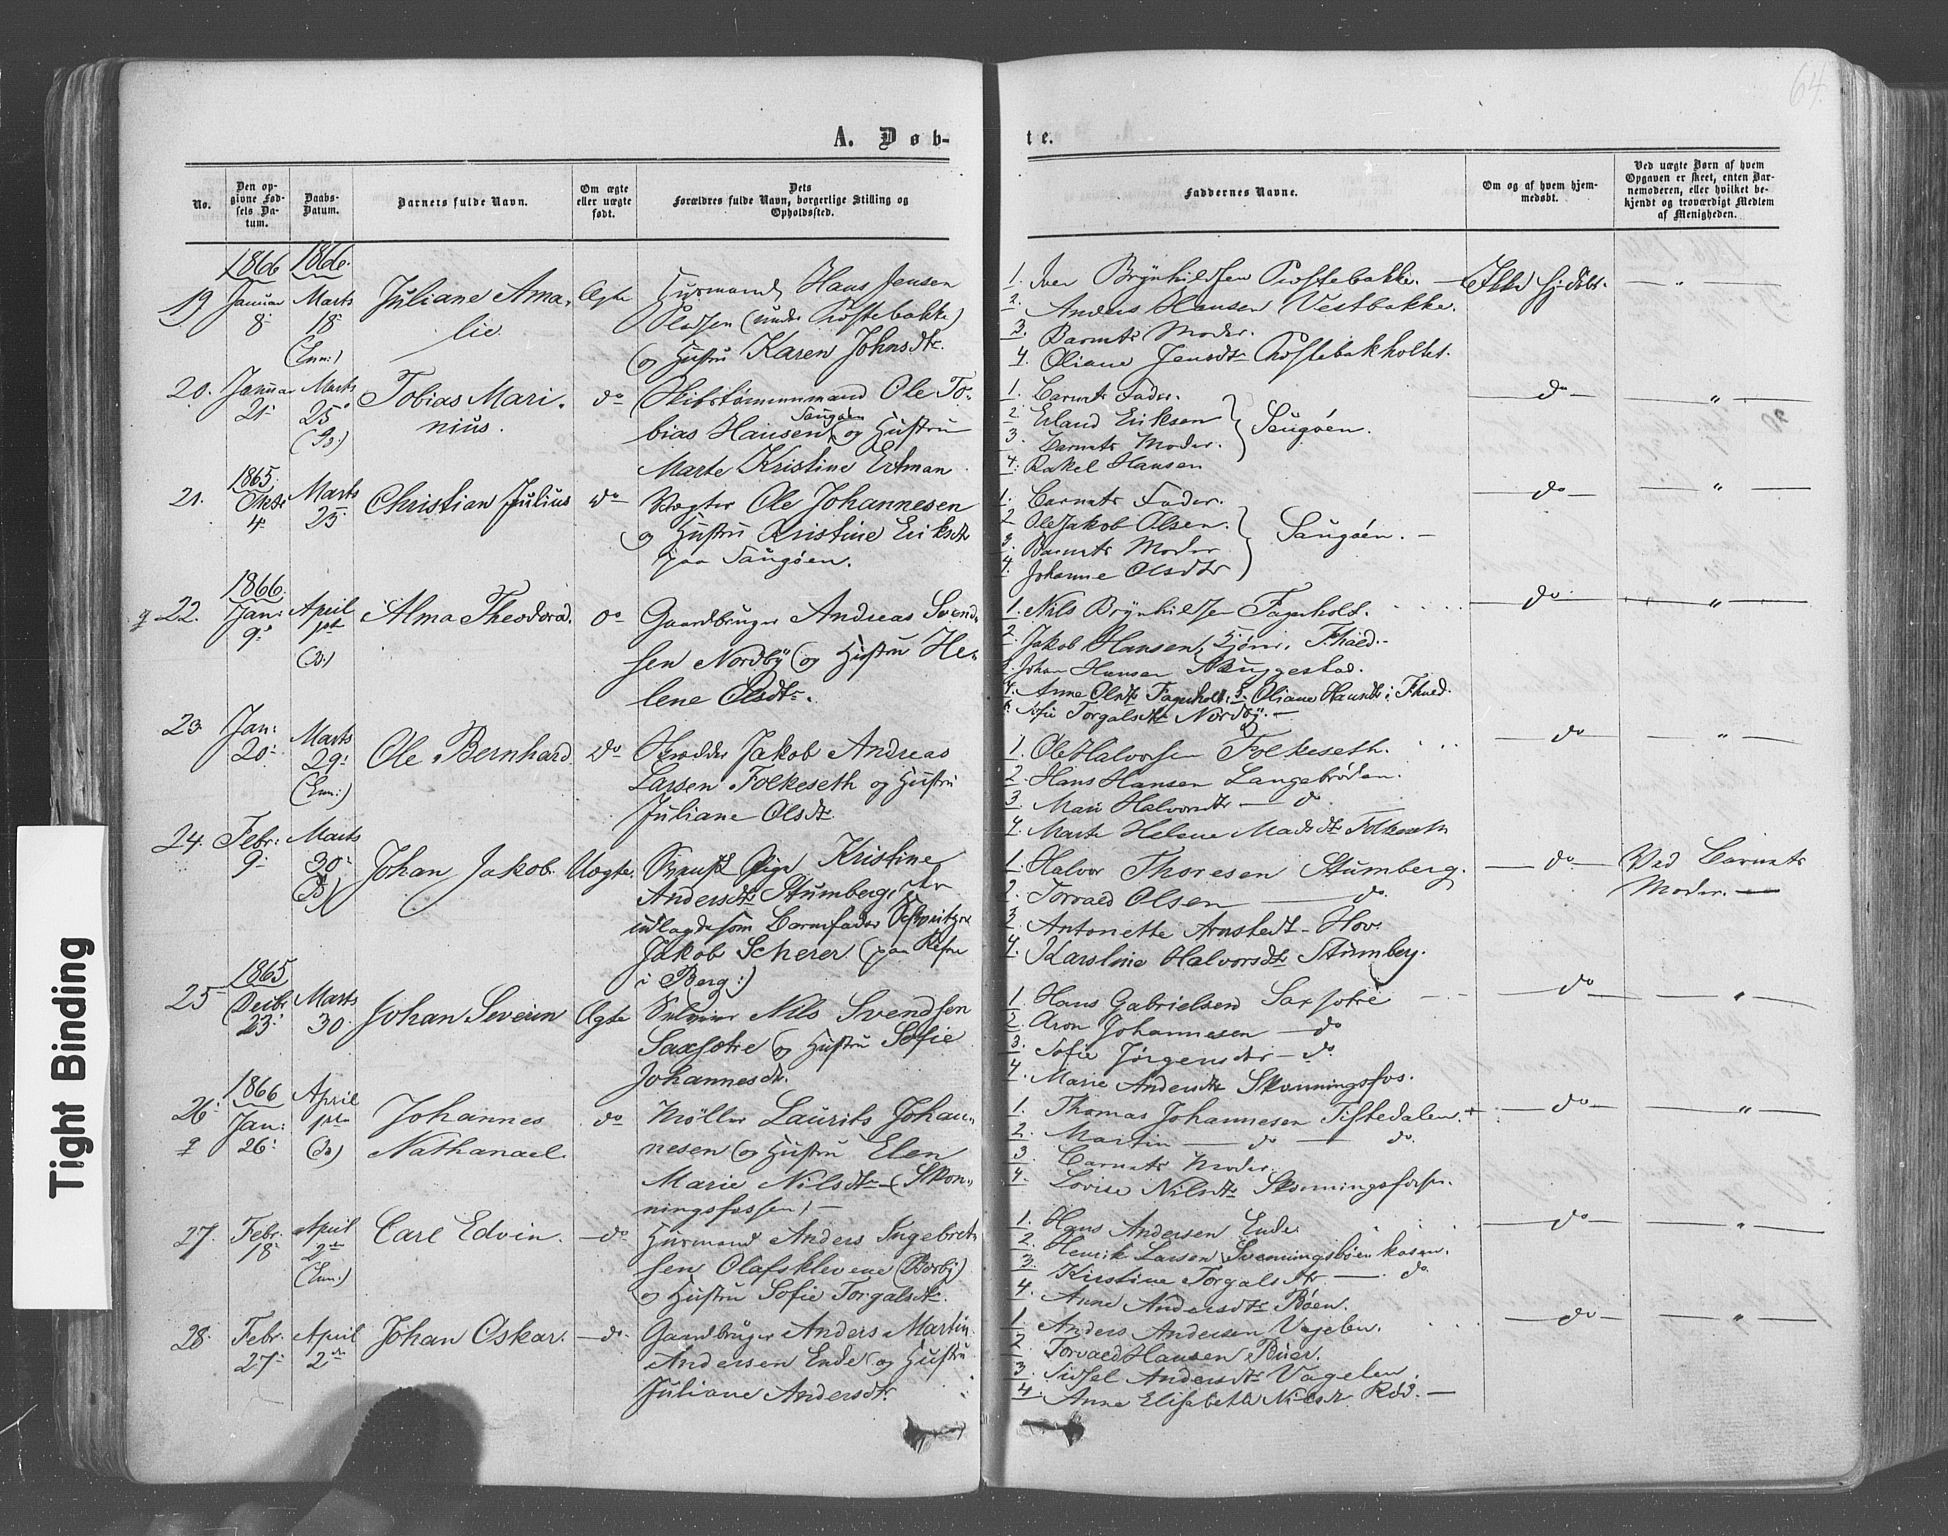 64.
A. Døb-
te.
No.
Den op-
givne Fød-
sels Da-
tum.
Daabs-
Datum.
Barnets fulde Navn.
Om ægte
eller uægte
født.
Dets
Forældres fulde Navn, borgerlige Stilling og
Opholdssted.
Faddernes Navne.
Om og af hvem hjem-
medøbt.
Ved uægte Børn af hvem
Opgaven er skeet, enten Bar-
nemoderen, eller hvilket be-
kjendt og troværdigt Medlem
af Menigheden.
19
1866
Januar
8
1866.
Marts
18
(Enn:)
Juliane Ama-
lie.
Ægte
Husmand Hans Jensen
Pladsen (under Toftebakke)
og Hustru Karen Johnsdtr.
1. Iver Brynhildsen Toftebakke.
2. Anders Hansen Vestbakke.
3. Barnets Moder.
4. Oliane Jensdtr
Ikke hj. døbt.
— " —
20.
Januar
21
Marts
25
(Is:)
Tobias Mari-
nius.
do
Skibstømmermand Ole To-
bias Hansen Saugøen og Hustru
Marte Kristine Ertman
1. Barnets Fader.
2. Erland Eriksen
3. Barnets Moder.
4. Rakel Hansen
Saugøen.
— do —
— " —
21.
1865.
Oktr
4.
Marts
25
Christian Julius
do
Vægter Ole Johannesen
og Hustru Kristine Eriksdtr
paa Saugøen.
1. Barnets Fader.
2. Ole Jakob Olsen.
3. Barnets Moder
4. Johanne Olsdtr
Saugøen. —
— do —
— " —
22.
1866.
Jan:
9
April
1ste
(Is:)
Alma Theodora.
do
Gaardbruger Andreas Svend-
sen Nordby og Hustru He-
lene Olsdtr.
1. Nils Brynhildsen Fagerholt.
2. Jakob Hansen, Fhald.
3. Johan Hansen Skuggestad.
4. Anne Olsdtr Fagerholt. 5. Oliane Hansdtr i Fhald.
6. Sofie Torgalsdtr Nordby. —
— do —
— " —
23.
Jan:
20
Marts
29
(Enn:)
Ole Bernhard
do
Skrædder Jakob Andreas
Larsen Folkeseth og Hustru
Juliane Olsdtr
1. Ole Halvorsen Folkeseth.
2. Hans Hansen Langebrøden.
3. Mari Halvorsdtr — do
4. Marte Helene Madsdtr Folkeseth
— do —
— " —
24.
Febr:
9
Marts
30
(Is)
Johan Jakob.
Uægte.
Pige Kristine
Andersdtr Stumberg,
udlagde som Barnefader Schweitzer
Jakob Scherer (paa
i Berg:)
1. Halvor Thoresen Stumberg.
2. Torvald Olsen — do.
3. Antonette Arnstedt — Hov.
4. Karoline Halvorsdtr Stumberg.
— do —
Ved Barnets
Moder. —
25
1865
Decbr
23
Marts
30
Johan Severin
Ægte
Selveier Nils Svendsen
Saxsotre og Hustru Sofie
Johannesdtr.
1. Hans Gabrielsen Saxsotre
2. Aron Johannesen — do
3. Sofie Jørgensdtr — do
4. Marie Andersdtr Skonningsfos.
— do —
— " —
26
1866
Jan:
26
April
1ste
(Is)
Johannes
Nathanael.
do
Møller Laurits Johan-
nesen og Hustru Elen
Marie Nilsdtr (Skon-
ningsfossen) —
1. Thomas Johannesen Tistedalen.
2. Martin — do — do.
3. Barnets Moder
4. Lovise Nilsdtr Skonningsfossen.
— do —
— " —
27.
Febr.
18
April
2den
(Enn:)
Carl Edvin.
— do
Husmand Anders Ingebret-
sen Olafsklevene (Borby)
og Hustru Sofie Torgalsdtr.
1. Hans Andersen Ende.
2. Henrik Larsen Svenningsbøen kasen.
3. Kirstine Torgalsdtr — do
4. Anne Andersdtr Bøen.
— do —
— " —
28
Febr.
27
April
2den
Johan Oskar.
— do.
Gaardbruger Anders Martin
Andersen Ende og Hustru
Juliane Andersdtr.
1. Anders Andersen Vagelen.
2. Torvald Hansen Buer.
3. Sidsel Andersdtr Vagelen.
4. Anne Elisabeth Nilsdtr Rød. —
— do —
— " —
Tight Binding